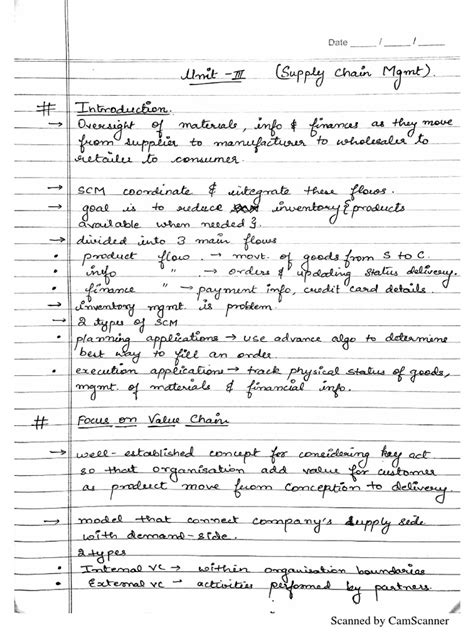 Date ____ / ____ / ____
Unit - III (Supply Chain Mgmt).
# Introduction.
→ Oversight of materials, info & finances as they move
from supplier to manufacturer to wholesaler to
retailer to consumer.
→ SCM coordinate & integrate these flows.
→ goal is to reduce inventory {products
available when needed}.
→ divided into 3 main flows
• product flow → movt. of goods from S to C.
• info " → orders & updating status delivery.
• finance " → payment info, credit card details.
→ inventory mgmt. is problem.
→ 2 types of SCM
• planning applications → use advance algo to determine
best way to fill an order.
• execution applications → track physical status of goods,
mgmt. of materials & financial info.
# Focus on Value Chain
→ well-established concept for considering key act
so that organisation add value for customer
as product move from conception to delivery.
→ model that connect company's supply side
with demand-side.
2 types
• Internal VC → within organisation boundaries
• External VC → activities performed by partners.
Scanned by CamScanner